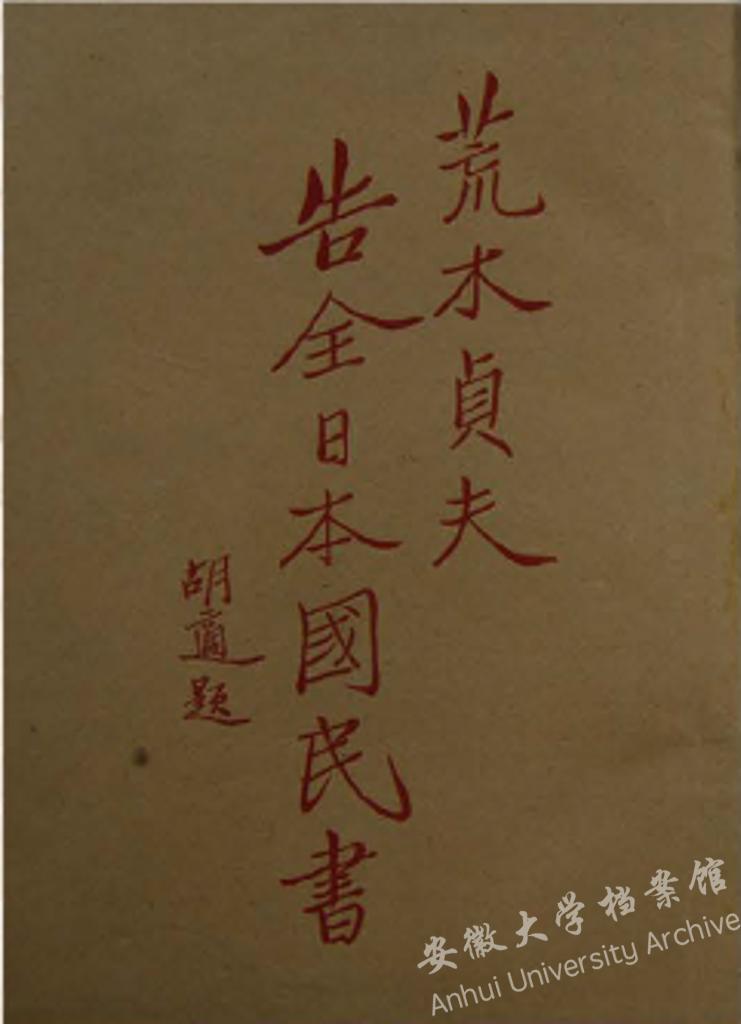 荒木貞夫
告全日本國民書
胡適題
安徽大学档案馆
Anhui University Archive